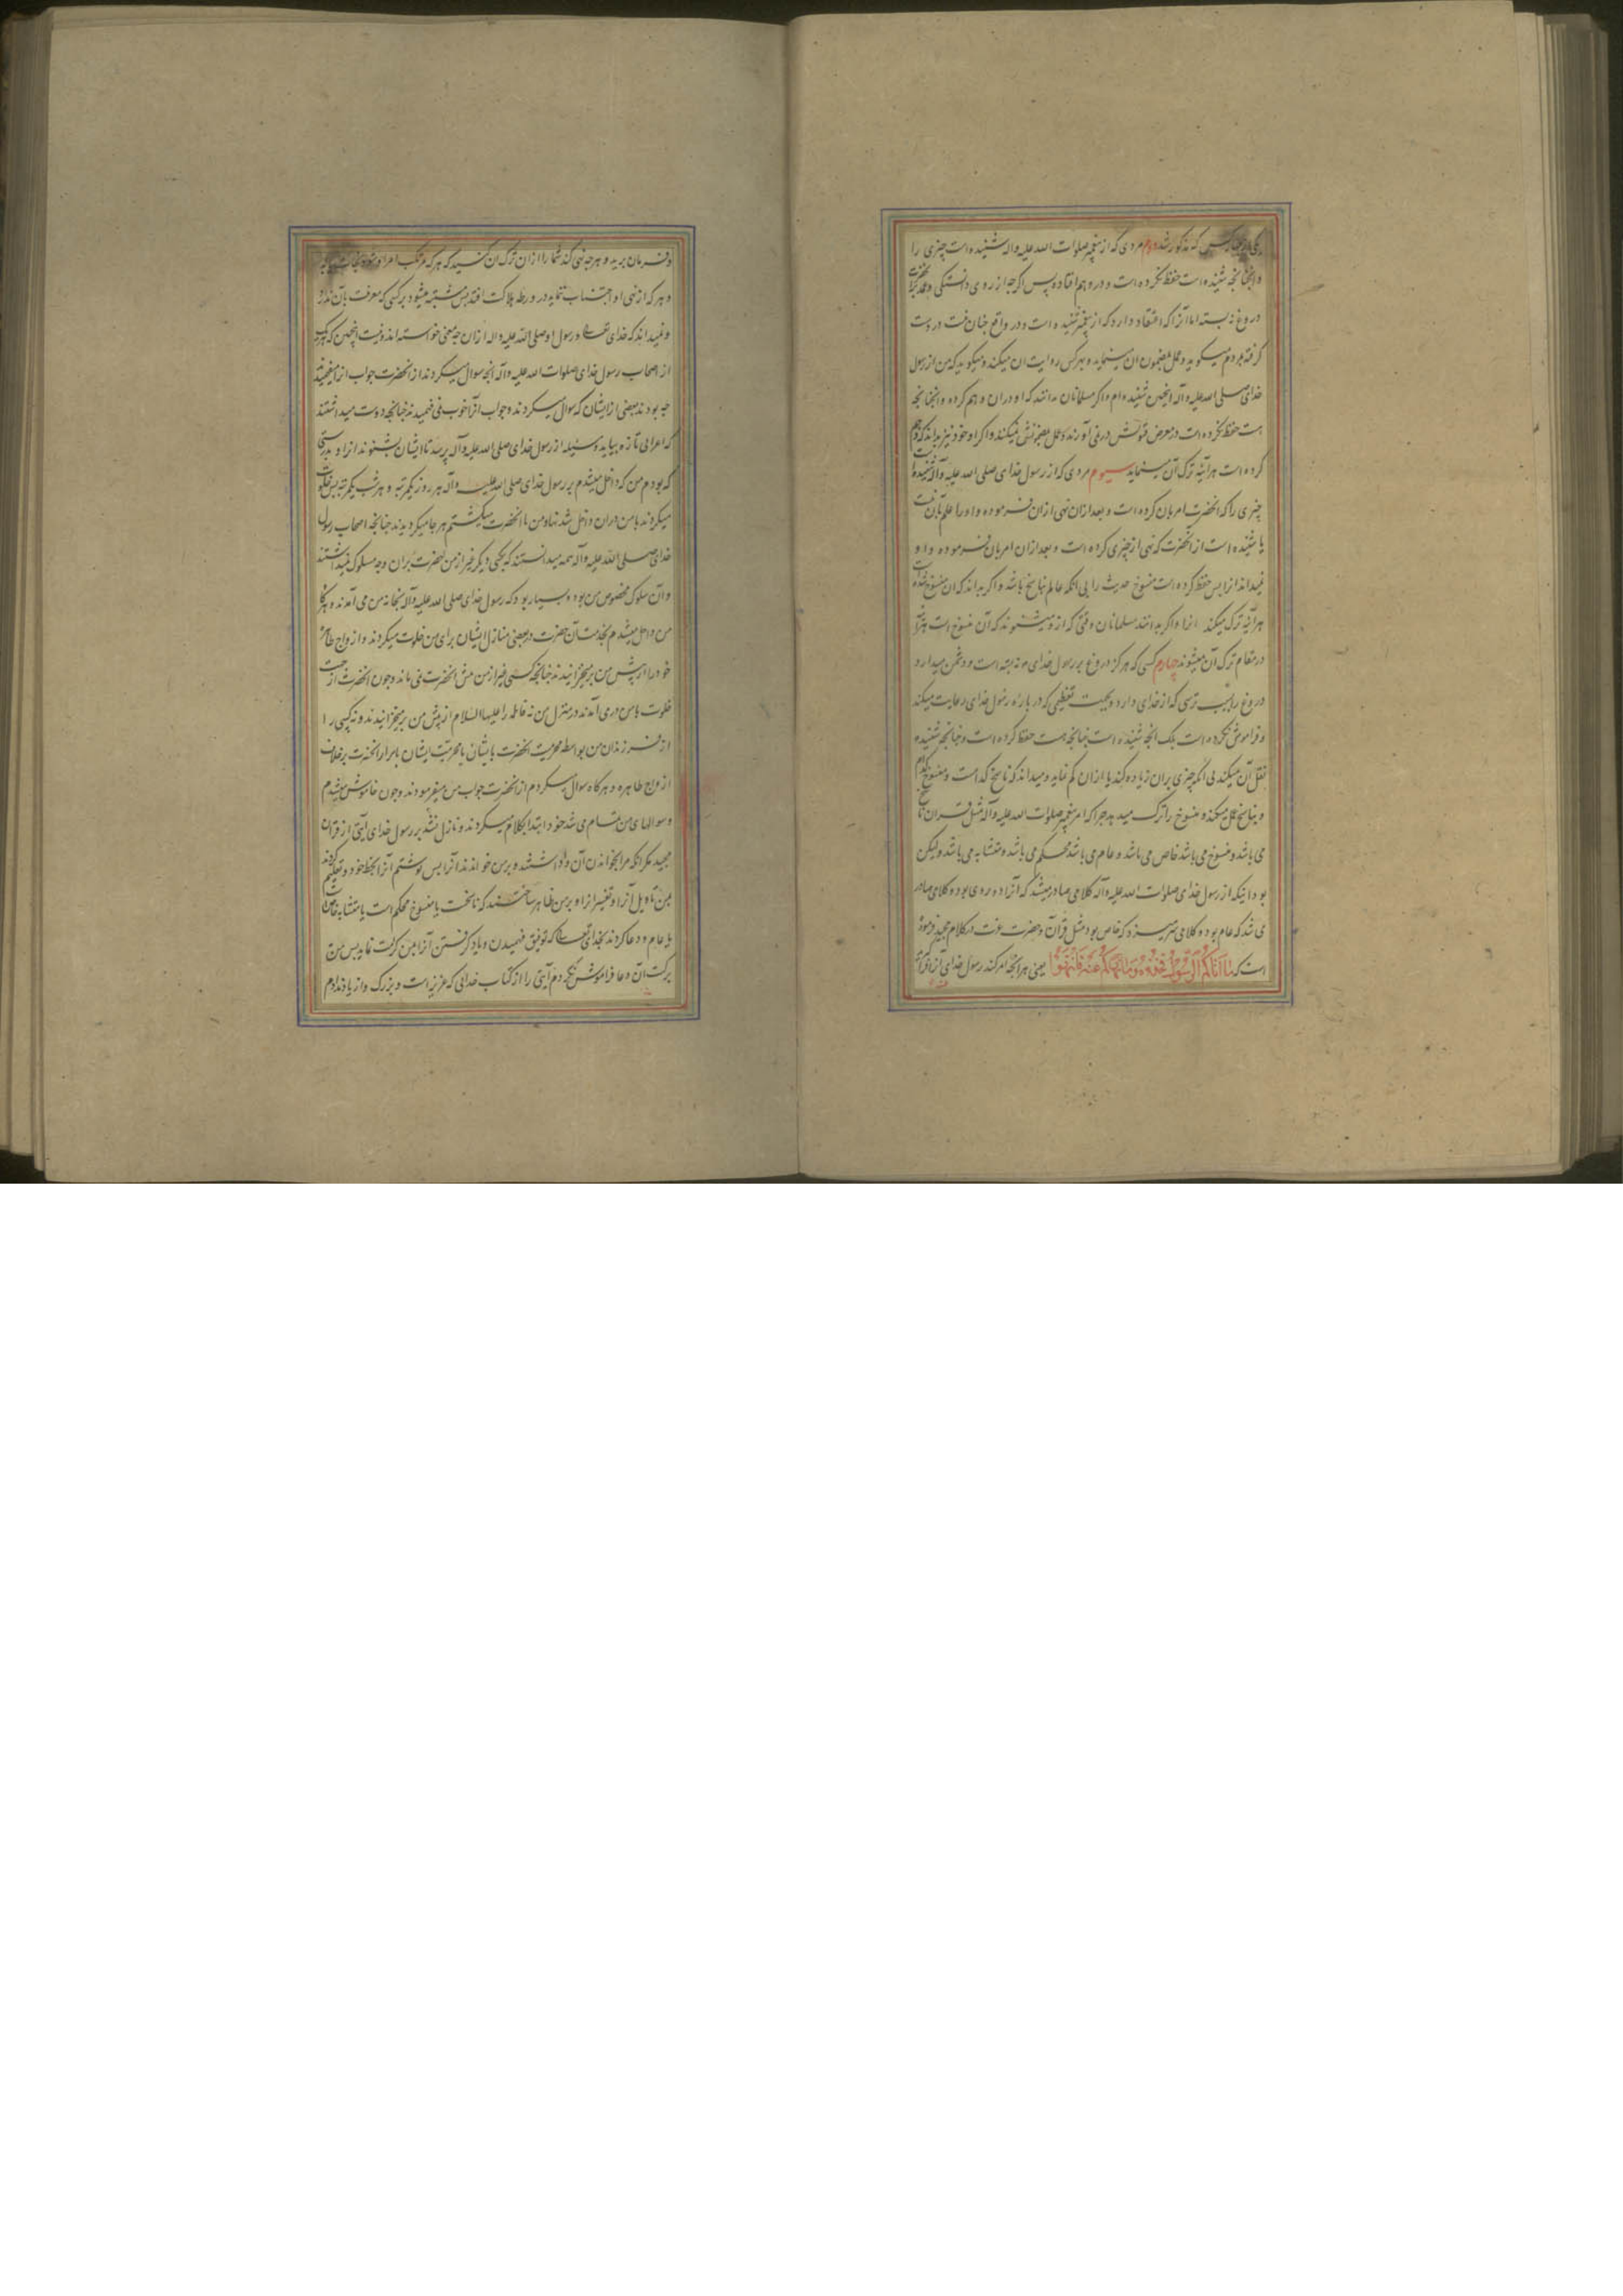 یکی از چهار کس که مذکور شد دوم مردی که از پیغمبر صلوات الله علیه واله شنیده است چیزی را
و انچنانچه شنیده است حفظ نکرده است و در و هم افتاده پس اگرچه از روی دانستگی و عمد
دروغ نبسته اما آنرا که اعتقاد دارد که از پیغمبر شنیده است و در واقع چنان نیست در دست
گرفته بمردم میگوید و عمل بمضمون ان مینماید و بهر کس روایت ان میکند و میگوید که من از رسول
خدای صلی الله علیه وآله انچنین شنیده ام و اگر مسلمانان بدانند که او دران وهم کرده و انچنانچه
هست حفظ نکرده است در معرض قبولش درنمی آورند و عمل بمضمونش نمیکنند و اگر او خود نیز بداند که وهم
کرده است هرآینه ترک آن مینماید سیوم مردی که از رسول خدای صلی الله علیه وآله شنیده است
چیزی را که انحضرت امر بان کرده است و بعد ازان نهی ازان فرموده و او را علم بآن نیست
یا شنیده است از انحضرت که نهی از چیزی کرده است و بعد ازان امر بان فرموده و او
نمیداند انرا پس حفظ کرده است منسوخ حدیث را بی انکه عالم بناسخ باشد و اگر بداند که ان منسوخ شده است
هرآینه ترک میکند انرا و اگر بدانند مسلمانان وقتی که ازو میشنوند که آن منسوخ است هرآینه
در مقام ترک آن میشوند چهارم کسی که هرگز دروغ بر رسول خدای نبسته است و دشمن میدارد
دروغ را بسبب ترسی که از خدای دارد و بجهت تعظیمی که در باره رسول خدای رعایت میکند
و فراموش نکرده است بلک انچه شنیده است چنانچه هست حفظ کرده است و چنانچه شنیده
نقل آن میکند بی انکه چیزی بران زیاده کند یا ازان کم نماید و میداند که ناسخ کدامست و منسوخ کدام
و بناسخ عمل میکند و منسوخ را ترک میدهد چرا که امر پیغمبر صلوات الله علیه وآله مثل قران ناسخ
می باشد و منسوخ می باشد خاص می باشد و عام می باشد محکم می باشد و متشابه می باشد ولیکن
بود انیکه از رسول خدای صلوات الله علیه وآله کلامی صادر میشد که آنرا دو روی بود و کلامی صادر
می شد که عام بود و کلامی سر میزد که خاص بود مثل قرآن و حضرت عزت در کلام مجید فرموده
است که ما اتاکم الرسول فخذوه وما نهاکم عنه فانتهوا یعنی هرانچه امر کند رسول خدای انرا فراگیرید
و فرمان برید و هرچه نهی کند شما را ازان ترک ان کنید که هر که مرتکب امر او شود نجات یابد
و هر که از نهی او اجتناب ننماید در ورطه هلاکت افتد پس مشتبه میشود بر کسی که معرفت بآن ندارد
و نمیداند که خدای تعالی و رسول او صلی الله علیه واله ازان چه معنی خواسته اند و نیست انچنین که هر یک
از اصحاب رسول خدای صلوات الله علیه وآله انچه سوال میکردند از انحضرت جواب انرا میفهمیدند
چه بودند بعضی از ایشان که سوال میکردند و جواب انرا خوب نمی فهمیدند چنانچه دوست میداشتند
که اعرابی تازه بیاید و مسئله از رسول خدای صلی الله علیه وآله پرسد تا ایشان بشنوند انرا و بدرستی
که بودم من که داخل میشدم بر رسول خدای صلی الله علیه وآله هر روز یکمرتبه و هر شب یکمرتبه پس خلوت
میکردند با من دران داخل شدنها و من با انحضرت میگشتم هرجا میگردیدند چنانچه اصحاب رسول
خدای صلی الله علیه وآله همه میدانستند که بیکی دیگر غیر از من انحضرت بران وجه مسلوک نمیداشتند
و آن سلوک مخصوص من بود و بسیار بود که رسول خدای صلی الله علیه وآله بخانه من می آمدند و هرگاه
من داخل میشدم بخدمت آن حضرت در بعضی منازل ایشان برای من خلوت میکردند و ازواج طاهره
خود را از پیش من برمیخیزانیدند چنانچه کسی غیر از من پیش انحضرت نمی ماند و چون انحضرت از جهت
خلوت با من درمی آمدند در منزل من نه فاطمه را علیها السلام از پیش من برمیخیزانیدند و نه کسی را
از فرزندان من بواسطه محرمیت انحضرت بایشان یا محرمیت ایشان باسرار انحضرت برخلاف
ازواج طاهره و هرگاه سوال میکردم از انحضرت جواب من میفرمودند و چون خاموش میشدم
و سوالهای من تمام می شد خود ابتدا بکلام میکردند و نازل نشد بر رسول خدای آیتی از قران
مجید مکر انکه مرا بخواندن آن واداشتند و بر من خواندند آنرا پس نوشتم آنرا بخط خود و تعلیم کردند
بمن تاویل آنرا و تفسیر انرا و بر من ظاهر ساختند که ناسخست یا منسوخ محکم است یا متشابه خاص است
یا عام و دعا کردند بخدای تعالی که توفیق فهمیدن و یاد گرفتن آنرا بمن کرامت نماید پس من
ببرکت آن دعا فراموش نکردم آیتی را از کتاب خدائی که عزیز است و بزرگ و از یاد ندادم